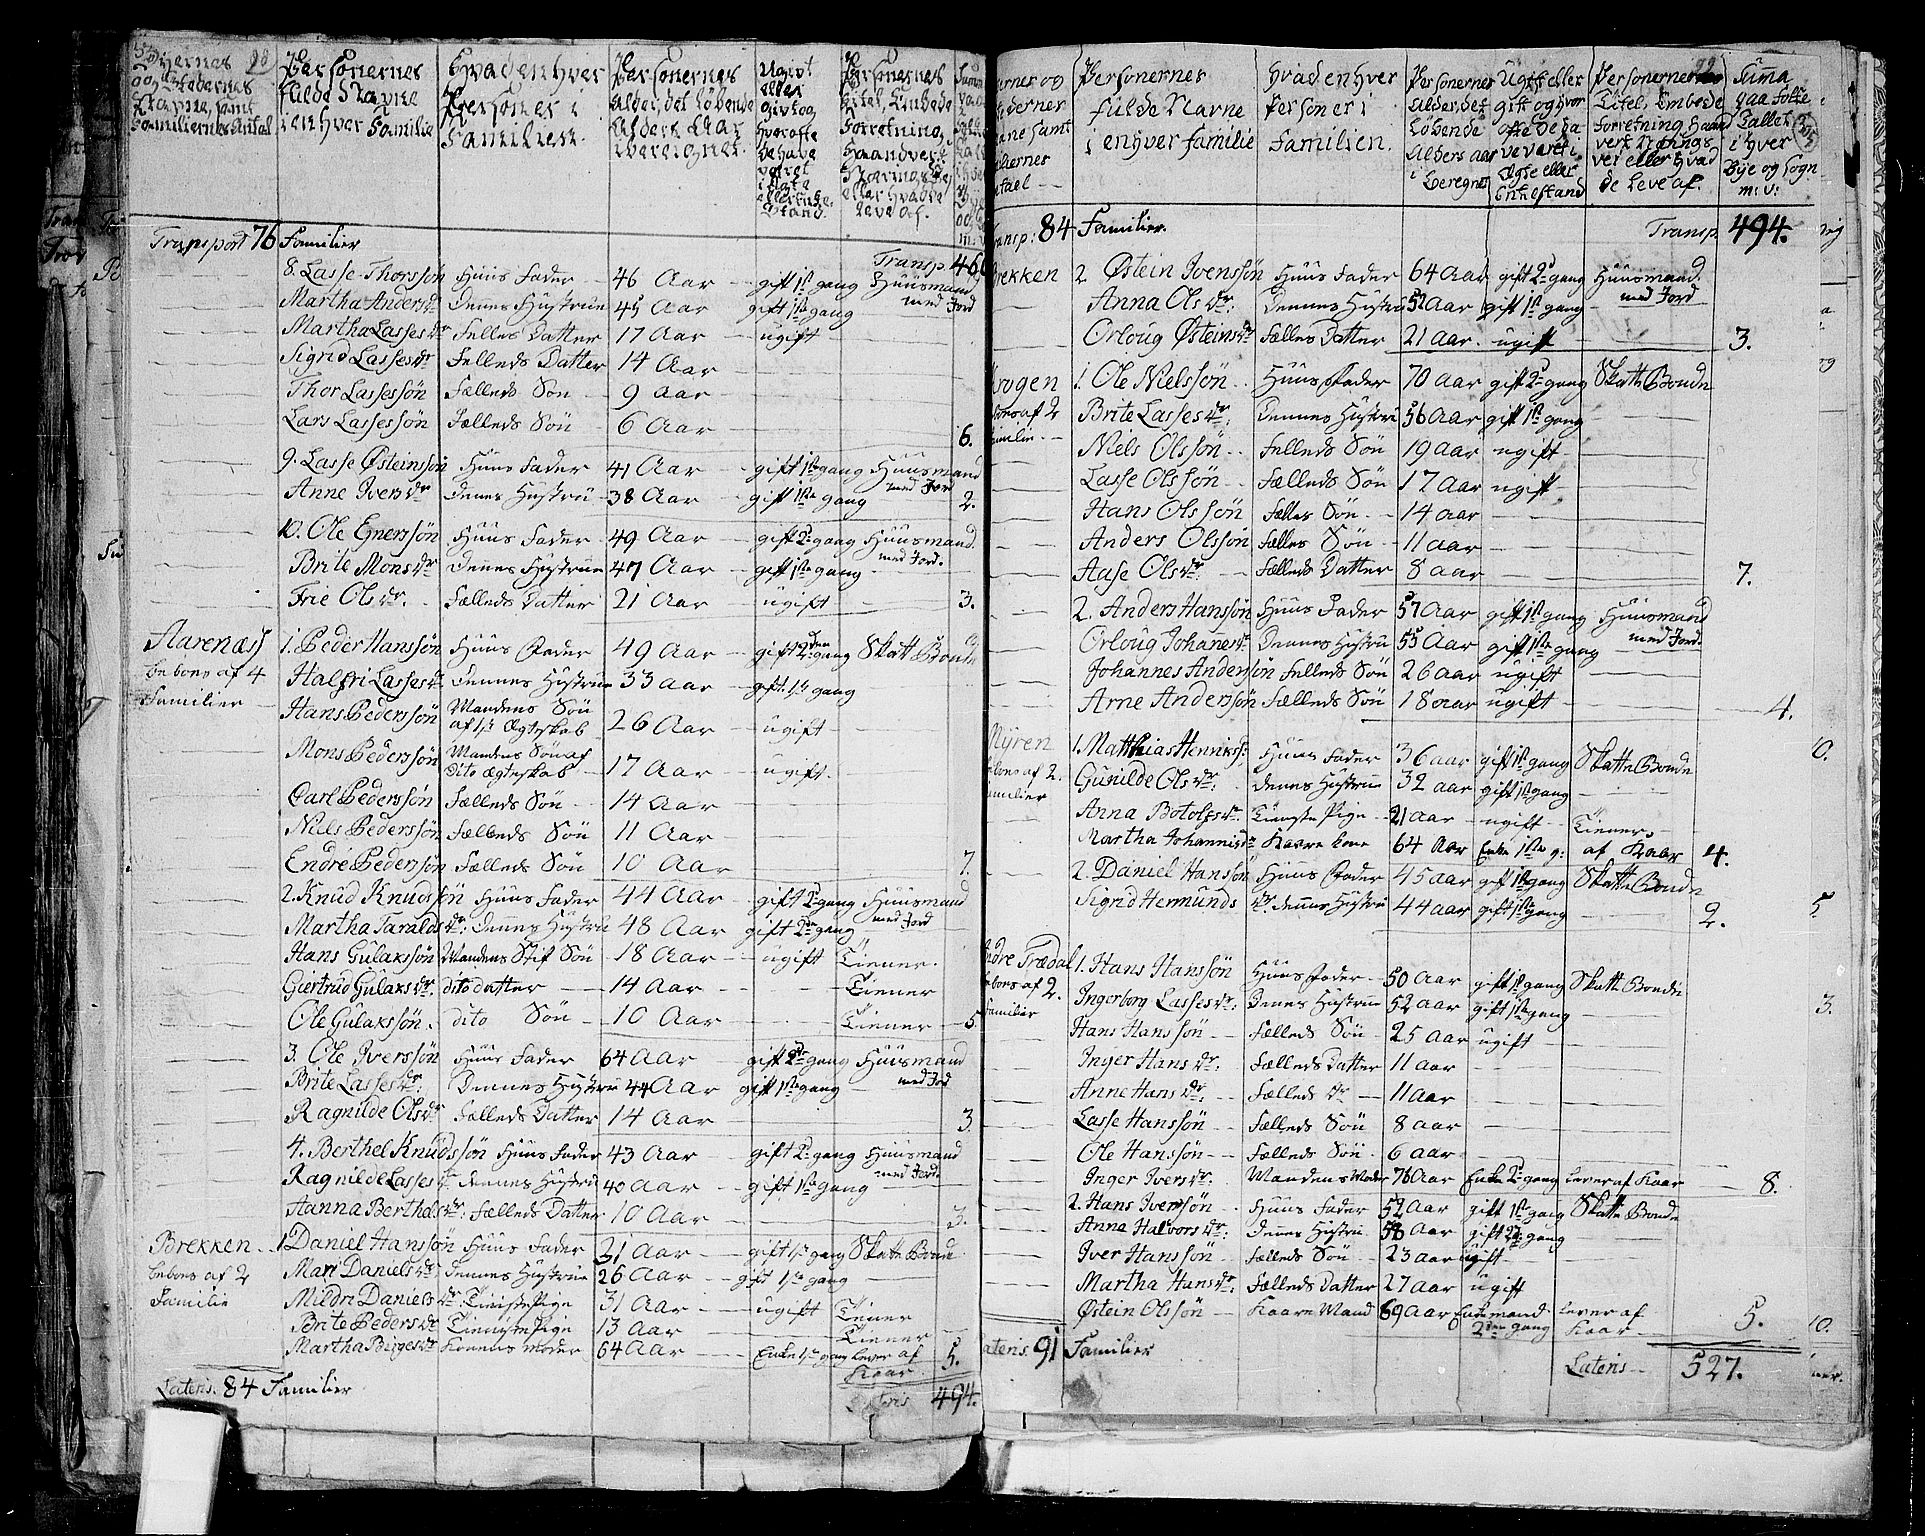 Byernes
og Stedernes
Navne, samt
Familiernes Antal
Personernes
fulde Navne
i enhver Familie
Hvad enhver
Person er i
Familien.
Personernes
Alder, det løbende
Alders Aar
iberegnet.
Ugivt
eller
givt og
hvorofte
de have
været
i Ægte
eller Enke-
Stand.
Personernes
Titel, Embede
Forretning,
Haandverk
Næringsvej
eller hvad de
leve af.
Transport 76 Familier
Transp. 466
8. Lasse Thorssøn Huus Fader 46 Aar gift 1ste gang Huusmand med Jord
Martha Andersdr Dennes Hustrue 45 Aar gift 1ste gang
Martha Lassesdr Felles Datter 17 Aar ugift
Sigrid Lassesdr Felleds Datter 14 Aar
Thor Lassessøn Fælleds Søn 9 Aar
Lars Lassessøn Fælleds Søn 6 Aar 6.
9. Lasse Østeinssøn Huus Fader 41 Aar gift 1ste gang Huusmand med Jord
Anne Iversdr Denes Hustru 38 Aar gift 1ste gang 2.
10. Ole Enerssøn Huus Fader 49 Aar gift 2. gang Huusmand med Jord.
Brite Monsdr Denes Hustrue 47 Aar gift 1ste gang
Frie Olsdr. Fælleds Datter 21 Aar ugift 3.
Aarenæs 1. Peder Hanssøn Huus Fader 49 Aar gift 2den gang Skatt Bonde
bebones af 4 Halfri Lassesdr Dennes Hustrue 33 Aar gift 1. gang
Familier Hans Pederssøn Mandens Søn af 1ste Ægteskab 26 Aar ugift
Mons Pederssøn Mandens Søn af Dito Ægteskab 17 Aar ugift.
Carl Pederssøn Fælleds Søn 14 Aar
Niels Pederssøn Fælleds Søn 11 Aar
Endre Pederssøn Fælleds Søn 10 Aar 7.
2. Knud Knudssøn Huus Fader 44 Aar gift 2. gang Huusmand med Jord
Martha Taraldsdr: Dennes Hustru 48 Aar gift 2. gang
Hans Gulakssøn Mandens Stif Søn 18 Aar ugift Tiener.
Giertrud Gulaksdr. dito datter 14 Aar Tiener
Ole Gulakssøn. dito Søn 10 Aar Tiener 5.
3. Ole Iverssøn Huus Fader 64 Aar gift 2. gang Huusmand med Jord
Brite Lassesdr: Dennes Hustru 44 Aar gift 1ste gang
Ragnilde Olsdr Fælleds Datter 14 Aar 3.
4. Berthel Knudssøn Huus Fader 43 Aar gift 2. gang Huusmand med Jord.
Ragnilde Lassesdr Dennes Hustru 40 Aar gift 1ste gang
Hanna Berthelsdr: Fælleds Datter 10 Aar 3.
Brekken 1 Daniel Hanssøn Huus Fader 31 Aar gift 1. gang Skatte Bonde
bebones af 2 Mari Danielsdr: Dennes Hustrue 26 Aar gift 1ste gang
Familie Mildri Danielsdr: Tieniste Pige 31 Aar ugift Tiener
Brite Pedersdr Tieniste Pige 13 Aar Tiener
Martha Birgesdr Konens Moder 64 Aar Enke 1. gang lever af Kaar 5.
Lateris. 84 Familier
Lateris 494.
Personernes
fulde Navne
i enhver familie
Hvad enhver
Person er i
Familien.
Personernes
Alder, det
Løbende
Alders aar
i beregnet
Ugift eller
gift og hvor
ofte de ha
ve været i
Ægte eller
Enkestand
Personernes
Titel, Embede
Forretning Haand
verk Nærings
vei eller hvad
de leve af.
99
Summa
paa Folke
Tallet
i hver
Bye og Sogn
m: v:
Transp: 84 Familier.
Transp 494.
Brekken 2. Østein Ivenssøn Huus Fader 64 Aar gift 2. gang Huusmand med Jord
Anna Olsdr: Dennes Hustru 52 Aar gift 1ste gang
Orloug Østeinsdr Fælles Datter 21 Aar. ugift 3.
1. Ole Nielssøn Huus Fader 70 aar gift 2. gang Skatte Bonde
Brite Lassesdr: Dennes Hustru 56 Aar gift 1ste gang
Niels Olssøn Felleds Søn 19 Aar ugift
Lasse Olssøn Fælleds Søn 17 Aar ugift
Hans Olssøn Fælles Søn 14 aar
Anders Olssøn Fælles Søn 11 aar
Aase Olsdr: Fælleds Datter 8 aar 7.
2. Anders Hanssøn Huus Fader 57 Aar gift 1ste gang Huusmand med Jord.
Orloug Johanesdr Dennes Hustru 55 Aar gift 1ste gang
Johannes Anderssøn Felleds Søn 26 aar ugift
Arne Anderssøn Fælleds Søn 18 aar ugift 4.
Myren 1. Matthias Henrikss: Huus Fader 36 aar gift 1ste gang Skatte Bonde
bebones af 2. Gunilde Olsdr: Denes Hustrue 32 aar gift 1ste gang
Familier
Anna Botolfsdr. Tieneste Pige 21 Aar ugift Tiener
Martha Johannisdr Kaare kone 64 Aar Enke 1ste g: af Kaar 4.
2. Daniel Hanssøn Huus Fader 45 Aar gift 1ste gang Skatte Bonde
Sigrid Hermunds dr: Dennes Hustru 44 aar gift 1ste gang 2.
Indre Trædal 1. Hans Hanssøn Huus Fader 50 Aar gift 1ste gang Skatte Bonde
bebones af 2. Ingerborg Lassesdr: Denes Hustrue 52 aar gift 1ste gang
Familier Hans Hanssøn Fælleds Søn 25 aar ugift
Inger Hansdr: Fælleds Datter 11 aar
Anne Hansdr: Fælleds dr 11 aar
Lasse Hanssøn Fælleds Søn 8 aar
Ole Hanssøn Fælleds Søn 6 aar
Inger Iversdr. Mandens Moder 76 Aar Enke 2. gang Lever af Kaar 8.
2. Hans Iverssøn Huus Fader 52 Aar gift 1ste gang Skatte Bonde
Anna Halvorsdr: Dennes Hustru 58 Aar gift 2. gang
Iver Hanssøn Fælleds Søn 23 aar ugift
Martha Hansdr: Fælleds Datter 27 aar ugift
Østein Olssøn Kaare Mand 69 aar Enkemand 2den gang lever af Kaar 5.
Lateris 91 Familier
Lateris 527.